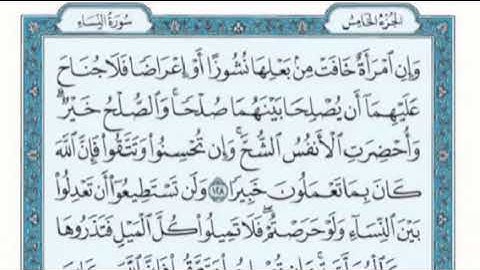 الجزء الخامس
سورة النساء
وَإِنِ ٱمْرَأَةٌ خَافَتْ مِنۢ بَعْلِهَا نُشُوزًا أَوْ إِعْرَاضًا فَلَا جُنَاحَ
عَلَيْهِمَآ أَن يُصْلِحَا بَيْنَهُمَا صُلْحًا ۚ وَٱلصُّلْحُ خَيْرٌ ۗ
وَأُحْضِرَتِ ٱلْأَنفُسُ ٱلشُّحَّ ۚ وَإِن تُحْسِنُوا۟ وَتَتَّقُوا۟ فَإِنَّ ٱللَّهَ
كَانَ بِمَا تَعْمَلُونَ خَبِيرًا ١٢٨ وَلَن تَسْتَطِيعُوٓا۟ أَن تَعْدِلُوا۟
بَيْنَ ٱلنِّسَآءِ وَلَوْ حَرَصْتُمْ ۖ فَلَا تَمِيلُوا۟ كُلَّ ٱلْمَيْلِ فَتَذَرُوهَا